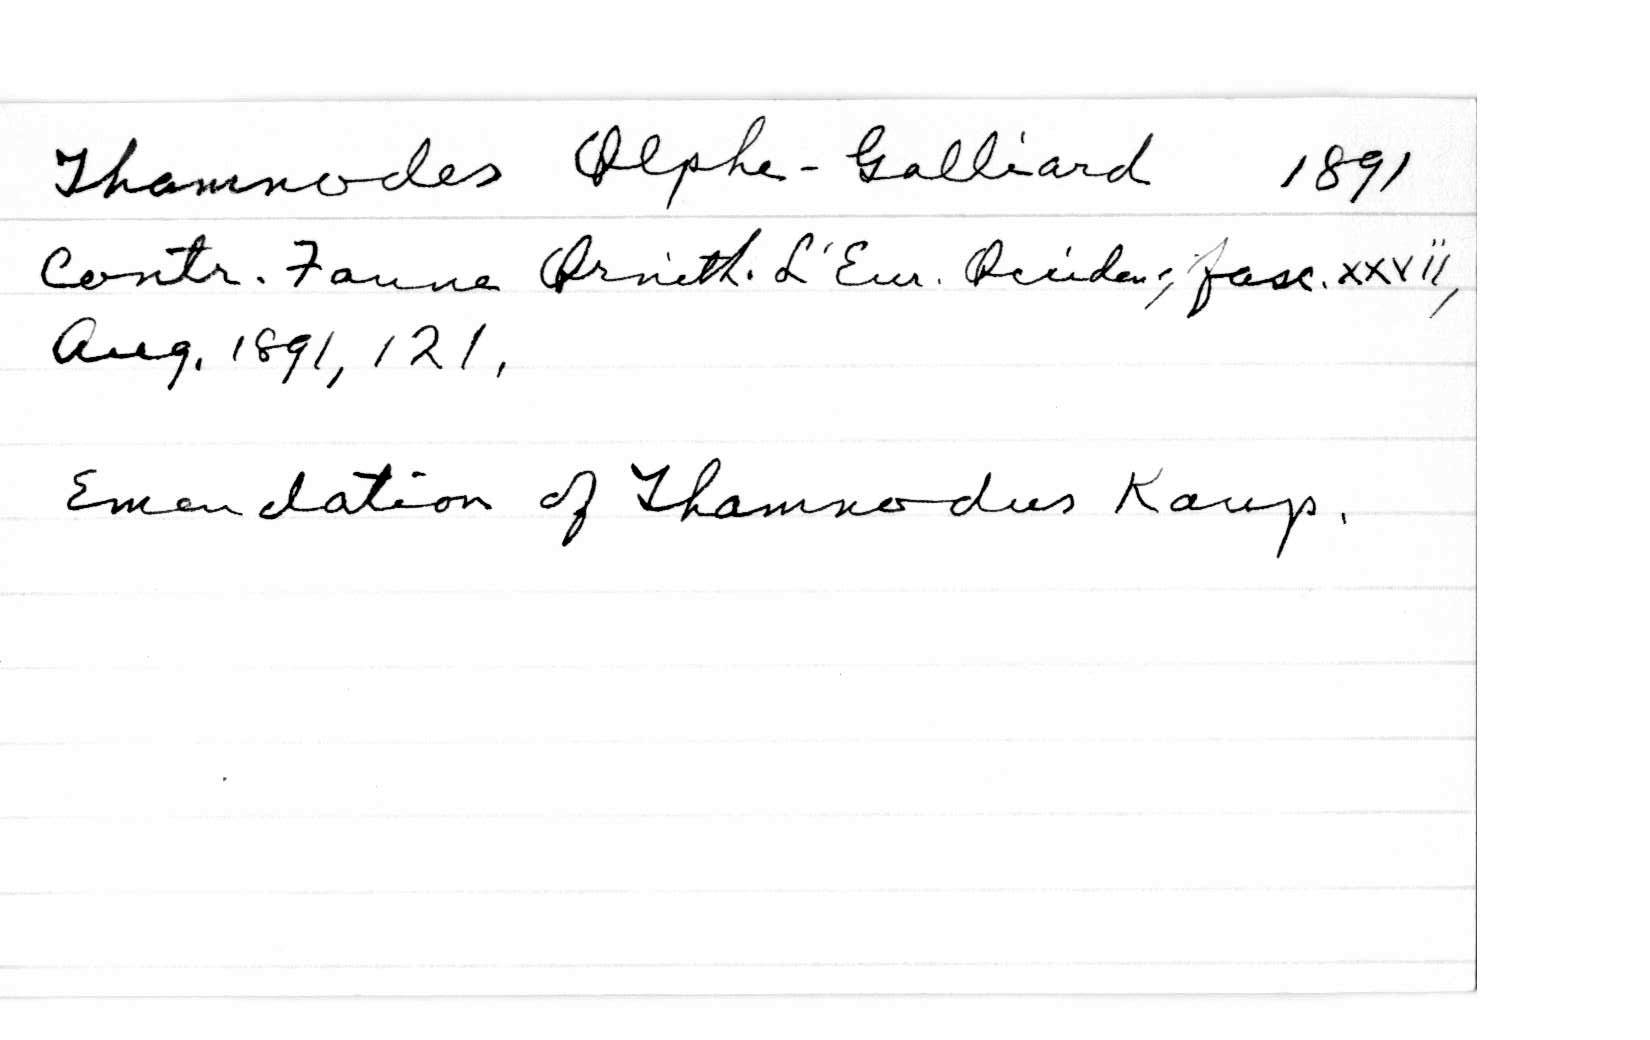 Thamnodes Olphe-Galliard 1891
Contr. Faune Ornith. L'Eur. Occiden., fasc. xxvii,
Aug. 1891, 121.
Emendation of Thamnodus Kaup.